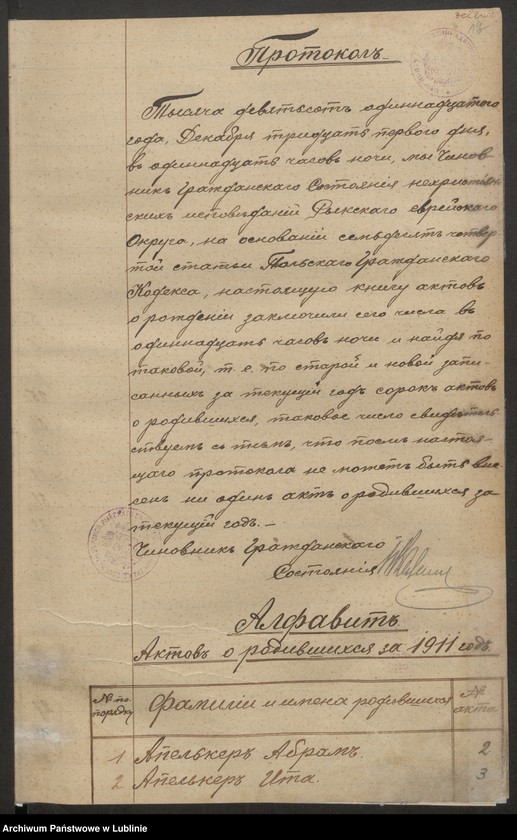 18
Протоколъ
Тысяча девятьсотъ одиннадцатого
года, Декабря тридцать перваго дня,
въ одиннадцать часовъ ночи, мы Чинов-
никъ Гражданскаго Состоянія нехристіан-
скихъ исповѣданій Рыкскаго еврейскаго
Округа, на основаніи семьдесятъ четвер-
той статьи Польскаго Гражданскаго
Кодекса, настоящую книгу актовъ
о рожденіи заключили сего числа въ
одиннадцать часовъ ночи и найдя по
таковой, т. е. по старой и новой запи-
санныхъ за текущій годъ сорокъ актовъ
о родившихся, таковое число свидѣтель
ствуемъ съ тѣмъ, что послѣ настоя-
щаго протокола не можетъ быть вне-
сенъ ни одинъ актъ о родившихся за
текущій годъ.-
Чиновникъ Гражданскаго
Состоянія
Алфавитъ
Актовъ о родившихся за 1911 годъ
№ по порядку
Фамиліи и имена родившихся
№ акта
1 Апелькеръ Абрамъ. 2
2 Апелькеръ Ита. 3
Archiwum Państwowe w Lublinie